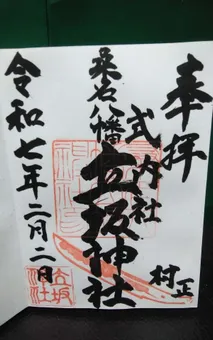 奉拝
式内社
桑名八幡
立坂神社
村正
令和七年二月二日